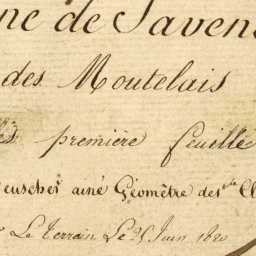 ne de Savens
des Moutelais
première feuille
ainé Géomètre de 1re Cl
Le Terrain Le 25 Juin 1820